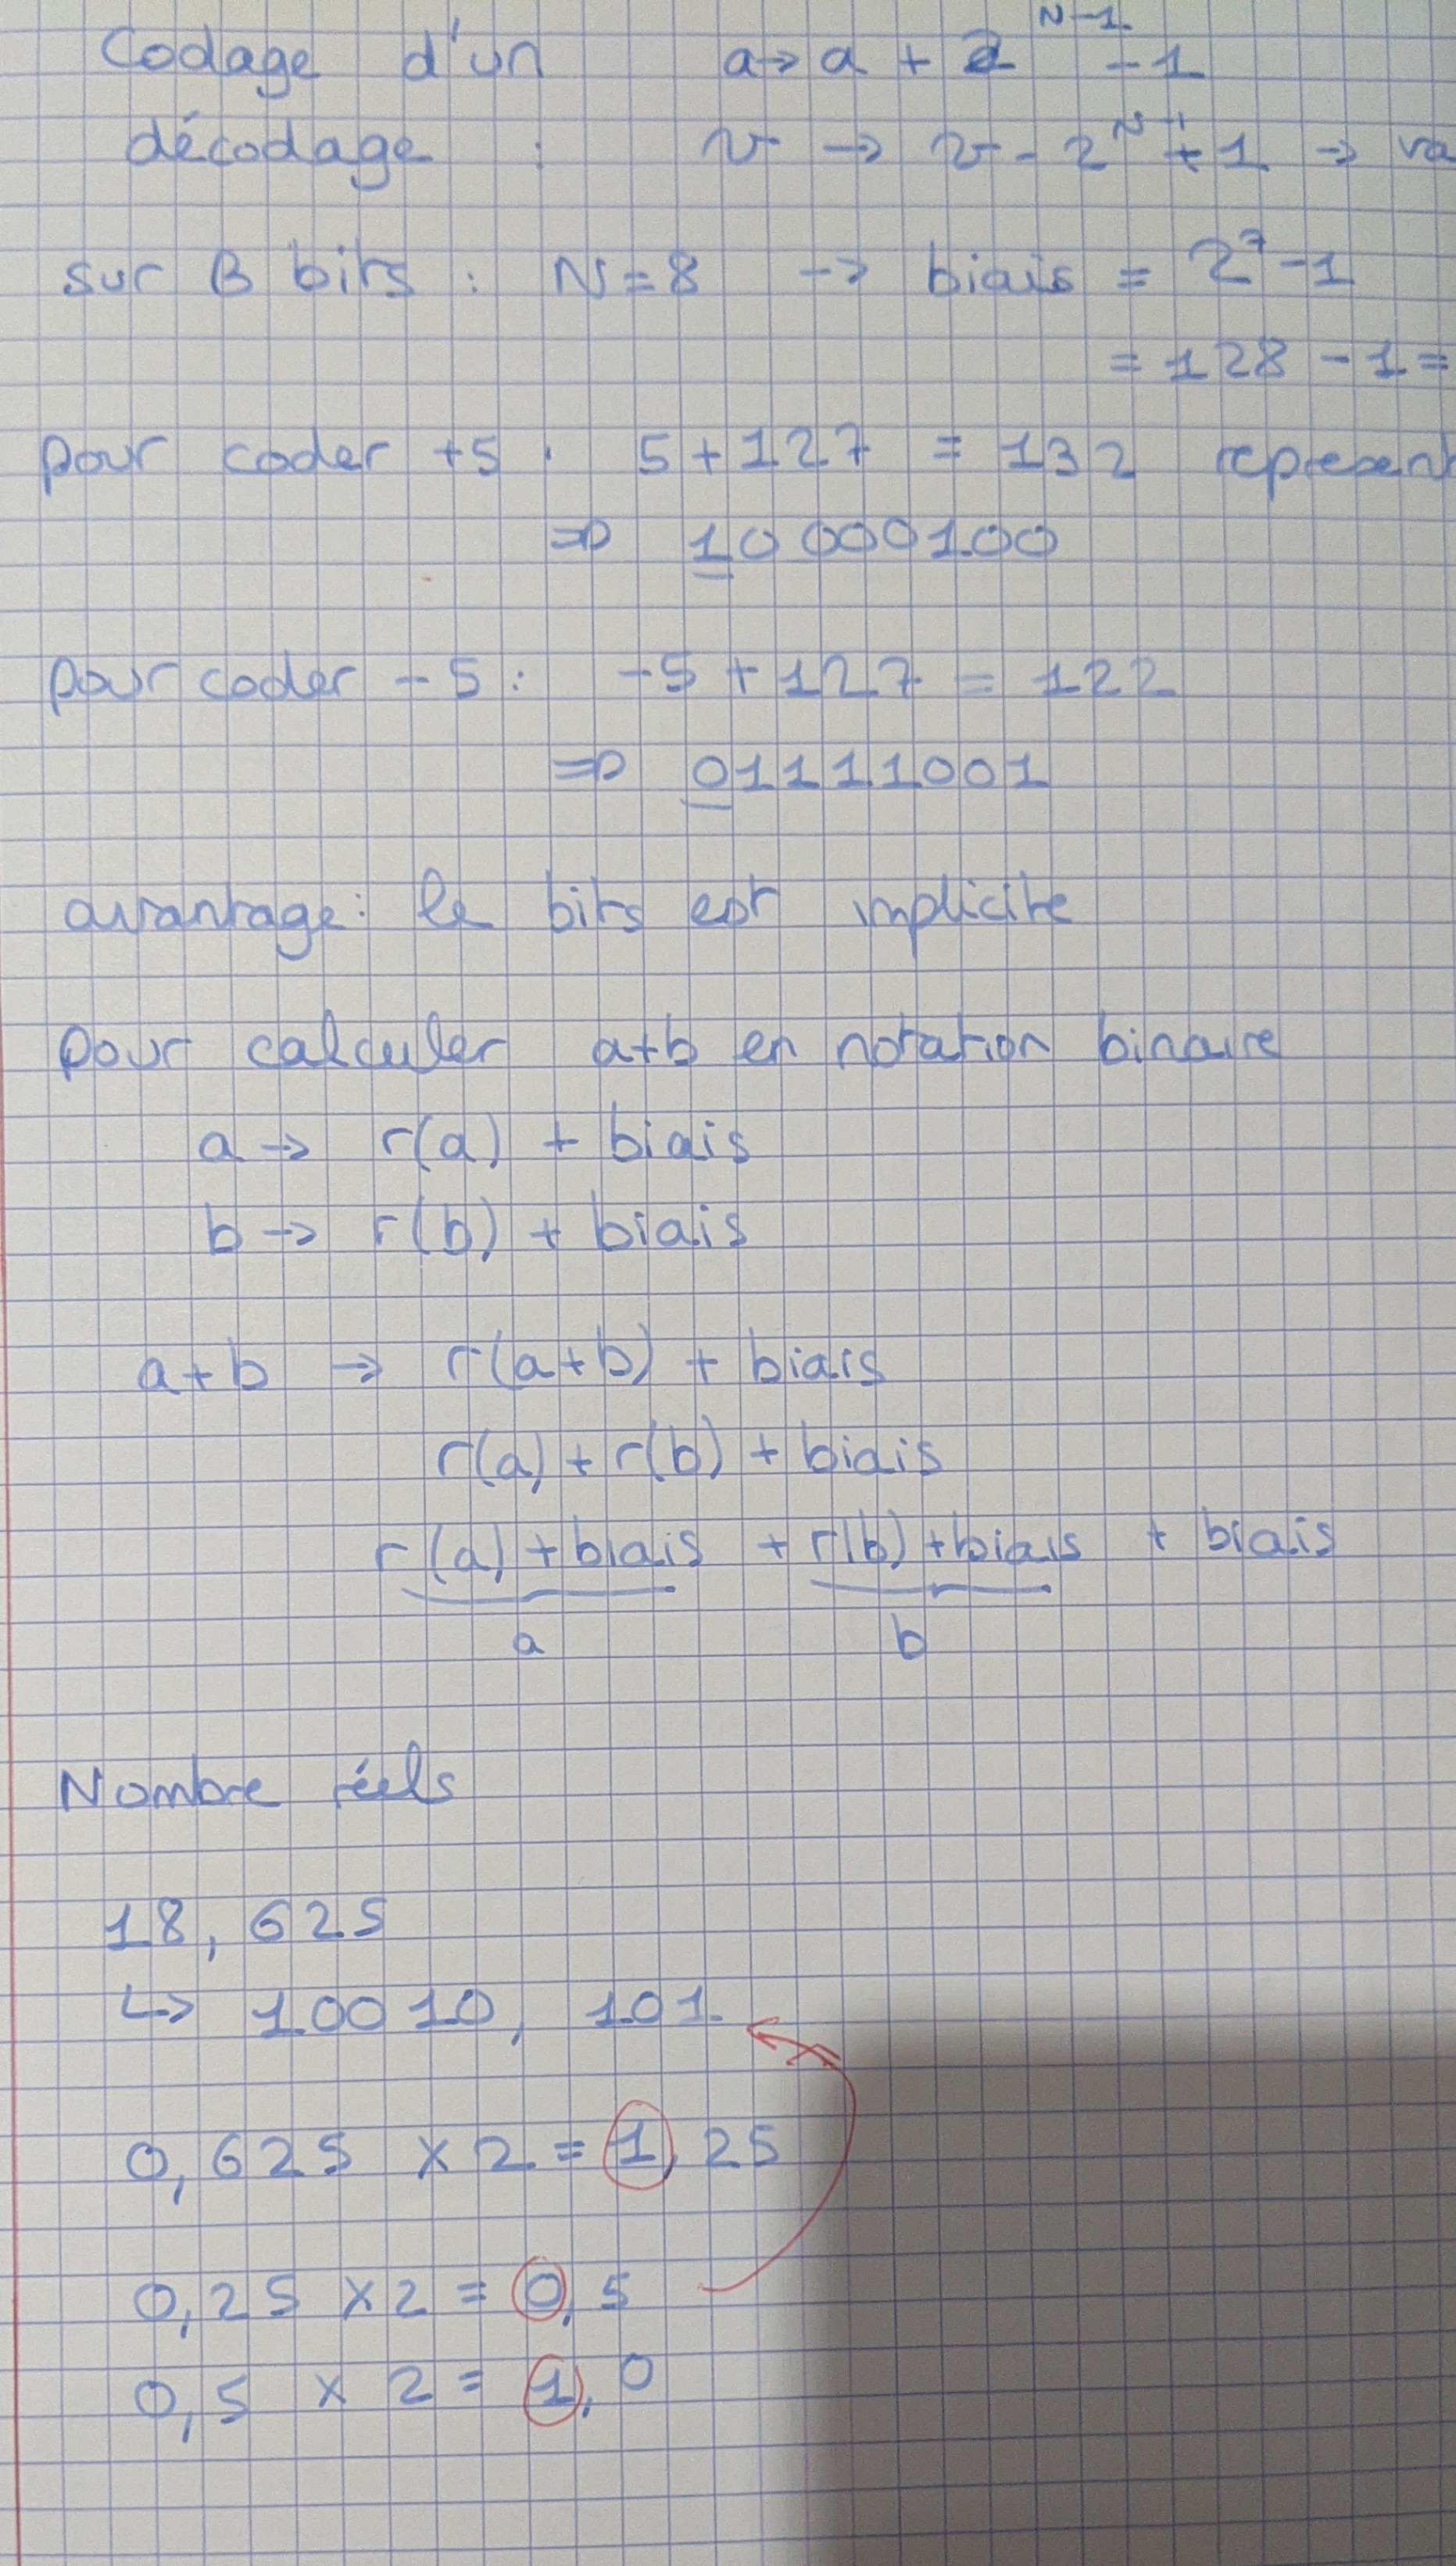 Codage d'un a → a + 2^N-1 - 1
décodage : v → v - 2^N-1 + 1 →
sur 8 bits : N = 8 → biais = 2^7 - 1
= 128 - 1 =
pour coder +5 : 5 + 127 = 132 represent
⇒ 10000100
pour coder -5 : -5 + 127 = 122
⇒ 01111001
avantage : le bits est implicite
pour calculer a+b en notation binaire
a → r(a) + biais
b → r(b) + biais
a+b → r(a+b) + biais
r(a) + r(b) + biais
r(a) + biais + r(b) + biais + biais
a b
Nombre réels
18,625
↳ 10010, 101
0,625 × 2 = 1,25
0,25 × 2 = 0,5
0,5 × 2 = 1,0